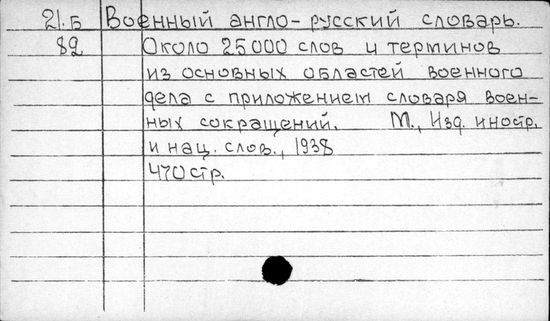 21.Б Военный англо-русский словарь.
82 Около 25000 слов и терминов
из основных областей военного
дела с приложением словаря воен-
ных сокращений. М., Изд. иностр.
и нац. слов., 1938
470 стр.